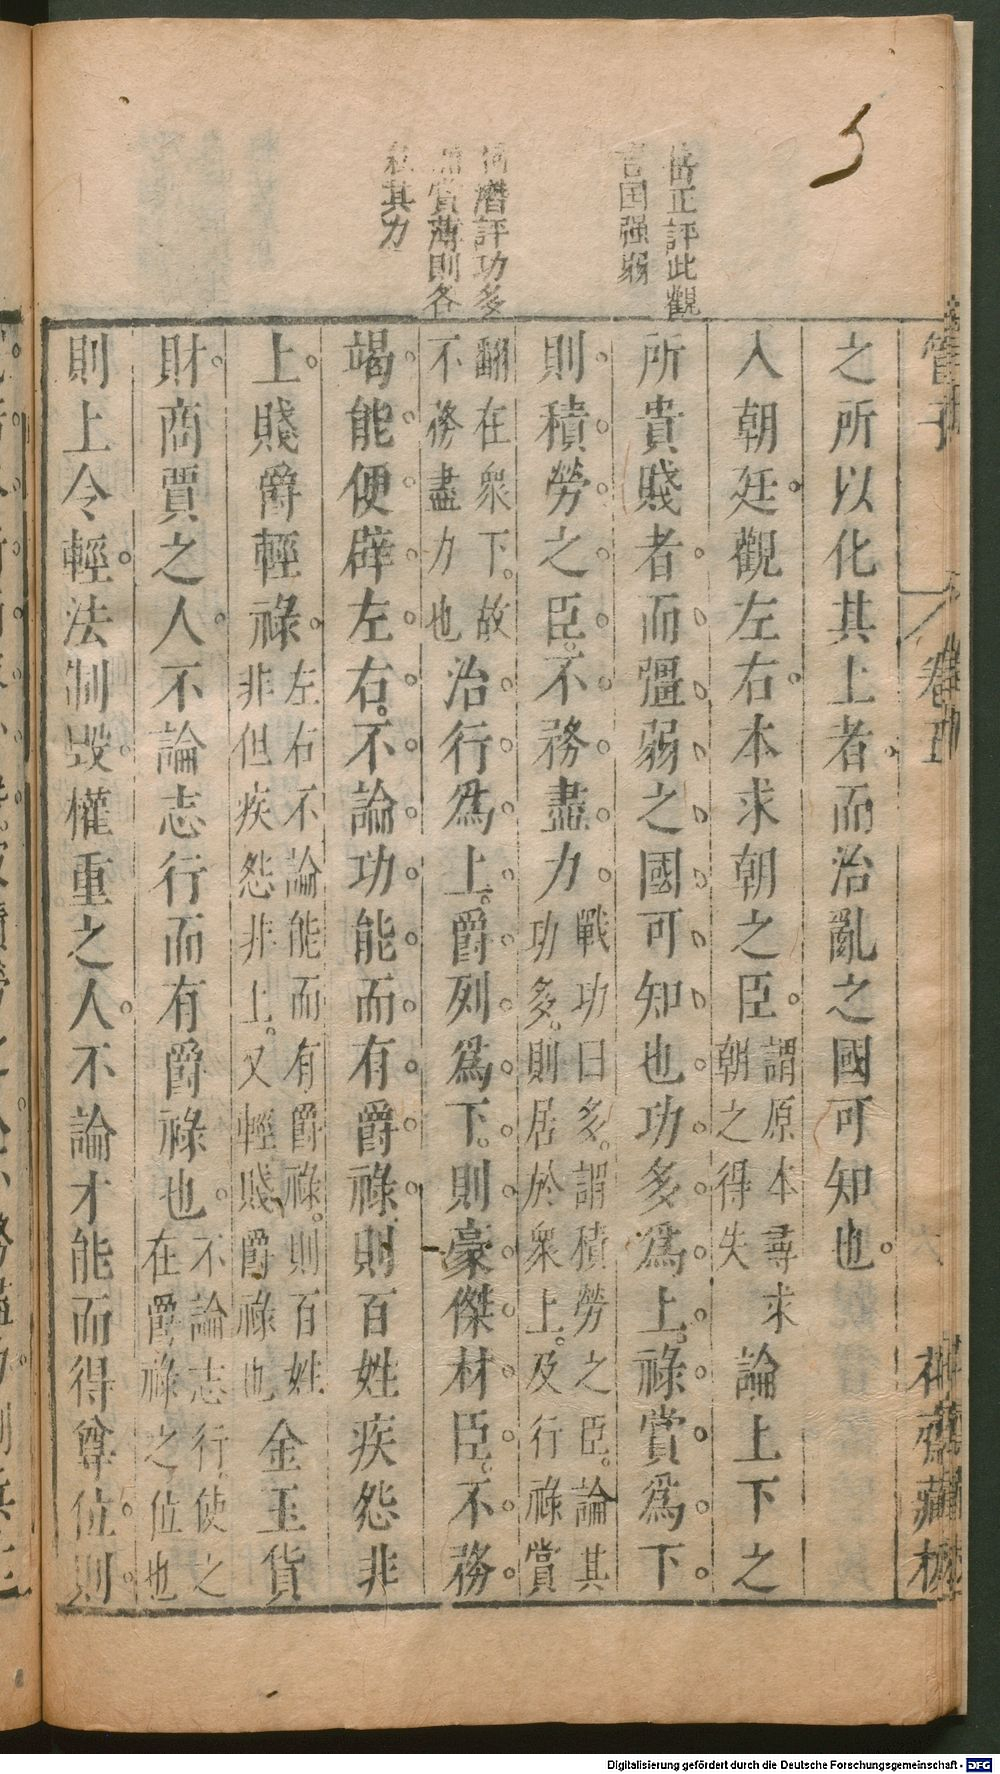 岳正評此觀
言国强弱
潛評功多
賞薄則各
私其力
管子
卷五
之所以化其上者而治亂之國可知也
入朝廷觀左右本求朝之臣謂原本尋求朝之得失論上下之
所貴賤者而彊弱之國可知也功多爲上祿賞爲下
則積勞之臣不務盡力戰功曰多謂積勞之臣論其功多則居於衆上及行祿賞
翻在衆下故不務盡力也治行爲上爵列爲下則豪傑材臣不務
竭能便辟左右不論功能而有爵祿則百姓疾怨非
上賤爵輕祿左右不論能而有爵祿則百姓非但疾怨非上又輕賤爵祿也金玉貨
財商賈之人不論志行而有爵祿也不論志行使之在爵祿之位也
則上令輕法制毁權重之人不論才能而得尊位則
Digitalisierung gefördert durch die Deutsche Forschungsgemeinschaft - DFG